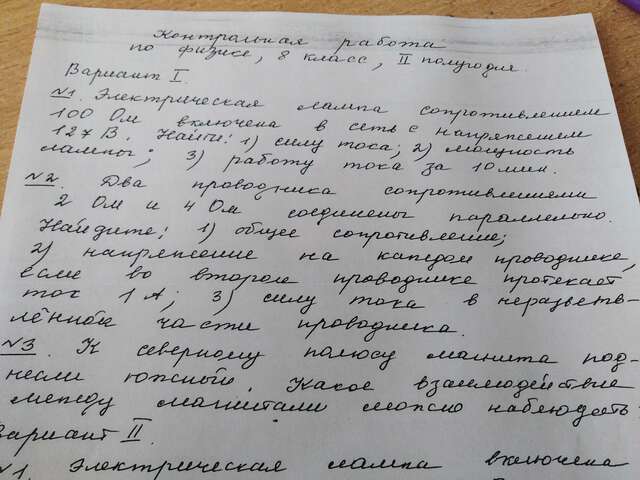 Контрольная работа
по физике, 8 класс, II полугодие.
Вариант I.
№1. Электрическая лампа сопротивлением
100 Ом включена в сеть с напряжением
127 В. Найти: 1) силу тока; 2) мощность
лампы; 3) работу тока за 10 мин.
№2. Два проводника сопротивлениями
2 Ом и 4 Ом соединены параллельно.
Найдите: 1) общее сопротивление;
2) напряжение на каждом проводнике,
если во втором проводнике протекает
ток 1 А; 3) силу тока в неразветв-
лённой части проводника.
№3. К северному полюсу магнита под-
несли южный. Какое взаимодействие
между магнитами можно наблюдать.
Вариант II.
№1. Электрическая лампа включена